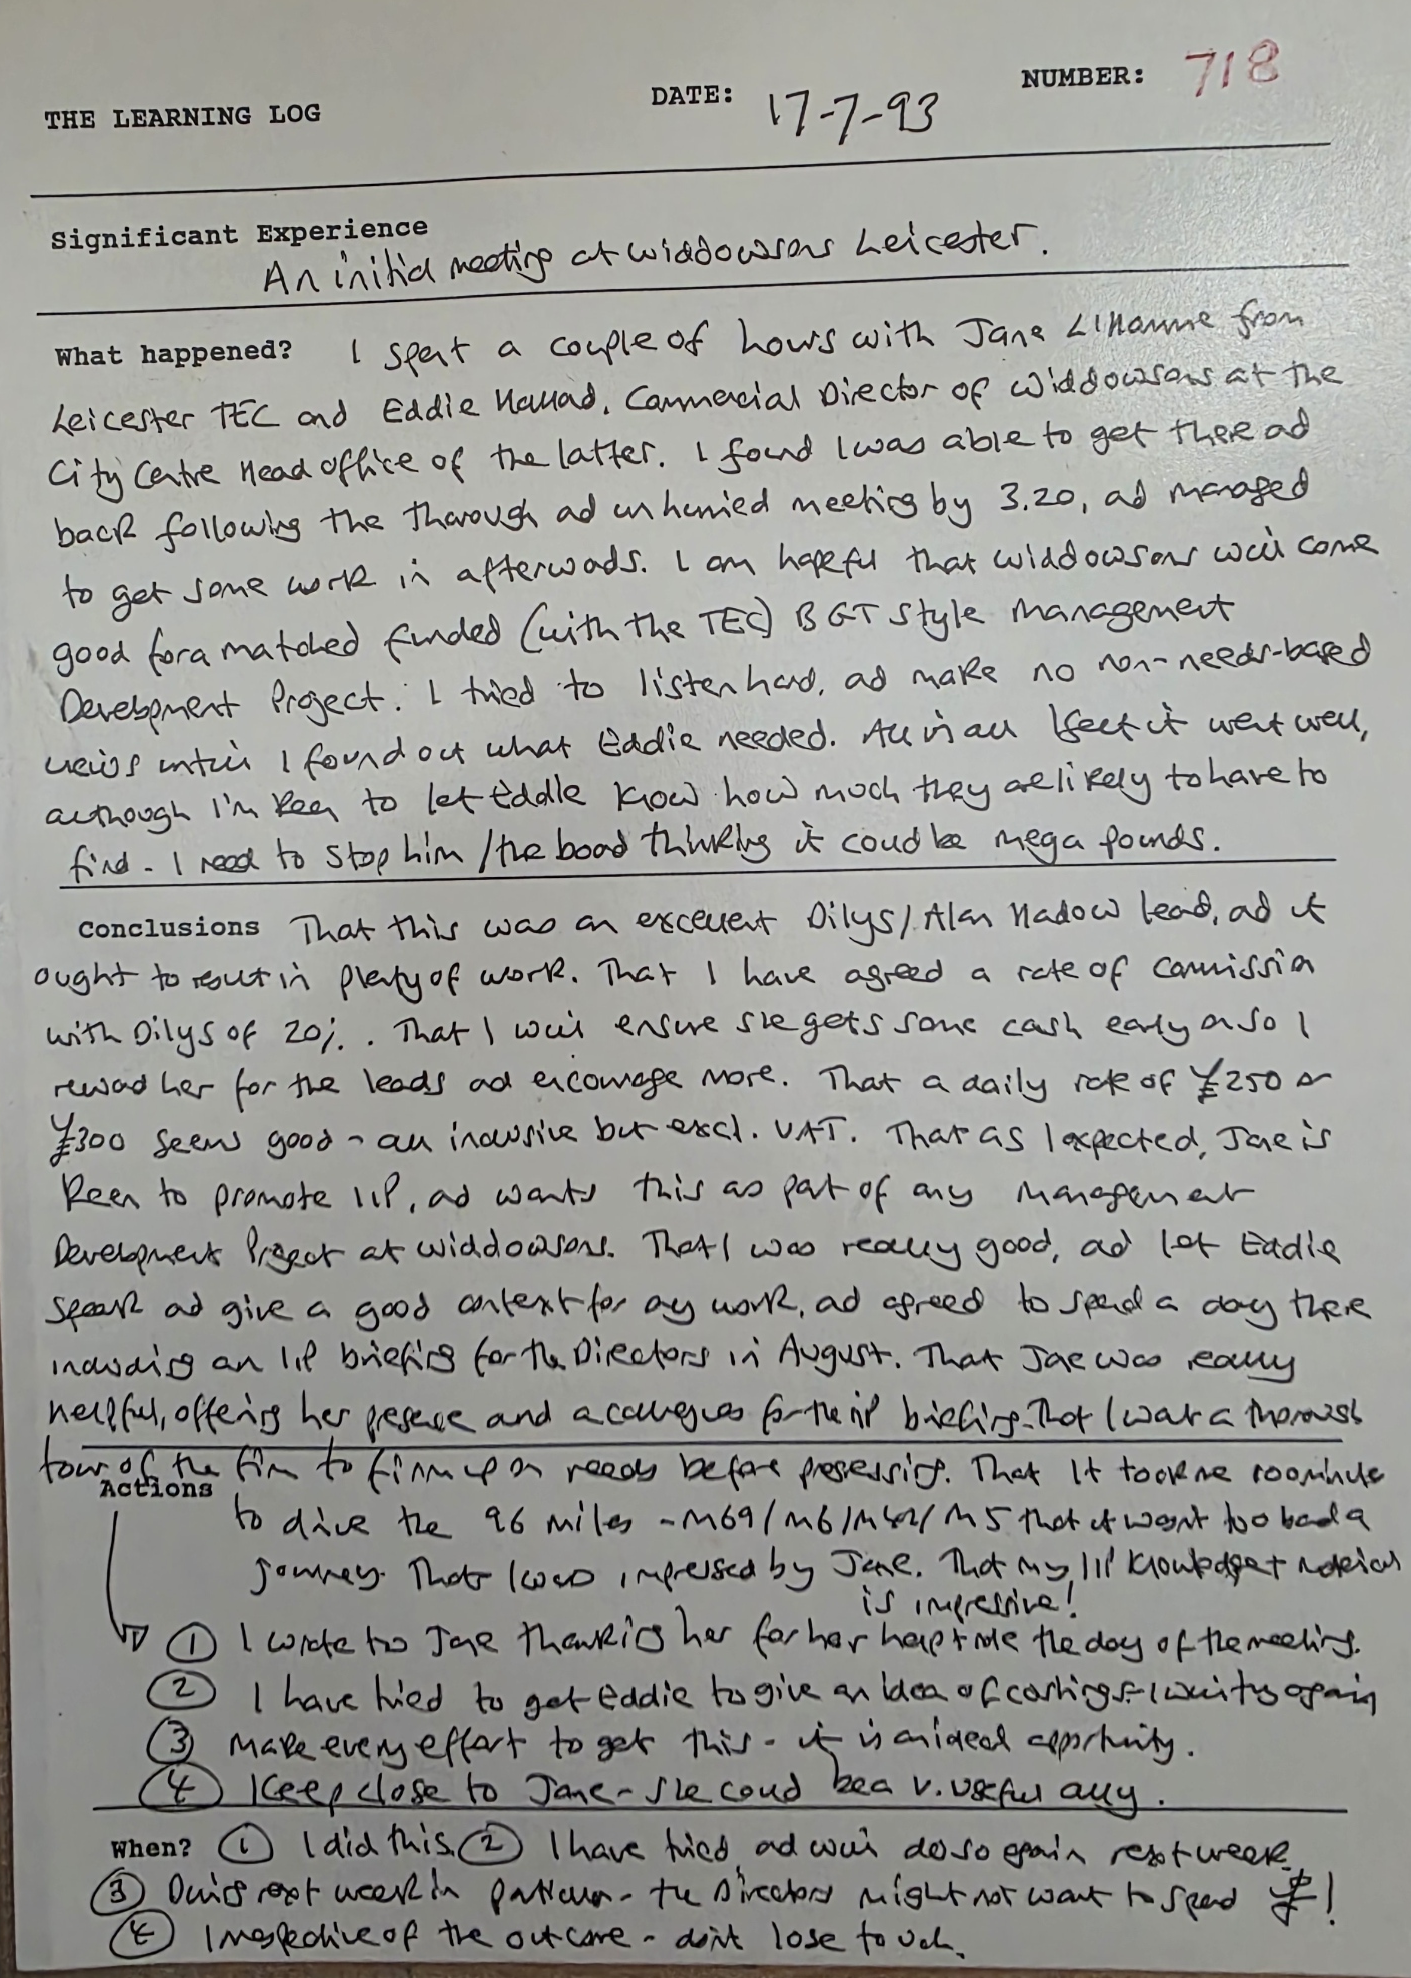 THE LEARNING LOG DATE: 17-7-93 NUMBER: 718
Significant Experience
An initial meeting at Widdowsons Leicester.
What happened? I spent a couple of hours with Jane from
Leicester TEC and Eddie, Commercial Director of Widdowsons at the
City Centre Head office of the latter. I found I was able to get there and
back following the thorough and unhurried meeting by 3.20, and managed
to get some work in afterwards. I am hopeful that Widdowsons will come
good for a matched funded (with the TEC) BGT style Management
Development Project. I tried to listen hard, and make no non-needs-based
views until I found out what Eddie needed. All in all I feel it went well,
although I'm keen to let Eddie know how much they are likely to have to
find - I need to stop him / the board thinking it could be mega pounds.
Conclusions That this was an excellent Dilys / Alan Hadow lead, and it
ought to result in plenty of work. That I have agreed a rate of commission
with Dilys of 20%. That I will ensure she gets some cash early on so I
reward her for the leads and encourage more. That a daily rate of £250 or
£300 seems good - all inclusive but excl. VAT. That as I expected, Jane is
keen to promote IIP, and wants this as part of any Management
Development Project at Widdowsons. That I was really good, and let Eddie
speak and give a good context for any work, and agreed to spend a day there
including an IIP briefing for the Directors in August. That Jane was really
helpful, offering her presence and a colleagues for the IIP briefing. That I want a thorough
tour of the firm to firm up on needs before progressing. That it took me 100 minutes
Actions
to drive the 96 miles - M69/M6/M42/M5 that it wasn't too bad a
journey. That I was impressed by Jane. That my IIP knowledge + material
is impressive!
① I wrote to Jane thanking her for her help + role the day of the meeting.
② I have tried to get Eddie to give an idea of costings - I will try again
③ Make every effort to get this - it is an ideal opportunity.
④ Keep close to Jane - she could be a v. useful ally.
When? ① I did this. ② I have tried, and will do so again next week.
③ During next week in particular - the Directors might not want to spend £!
④ Irrespective of the outcome - don't lose touch.